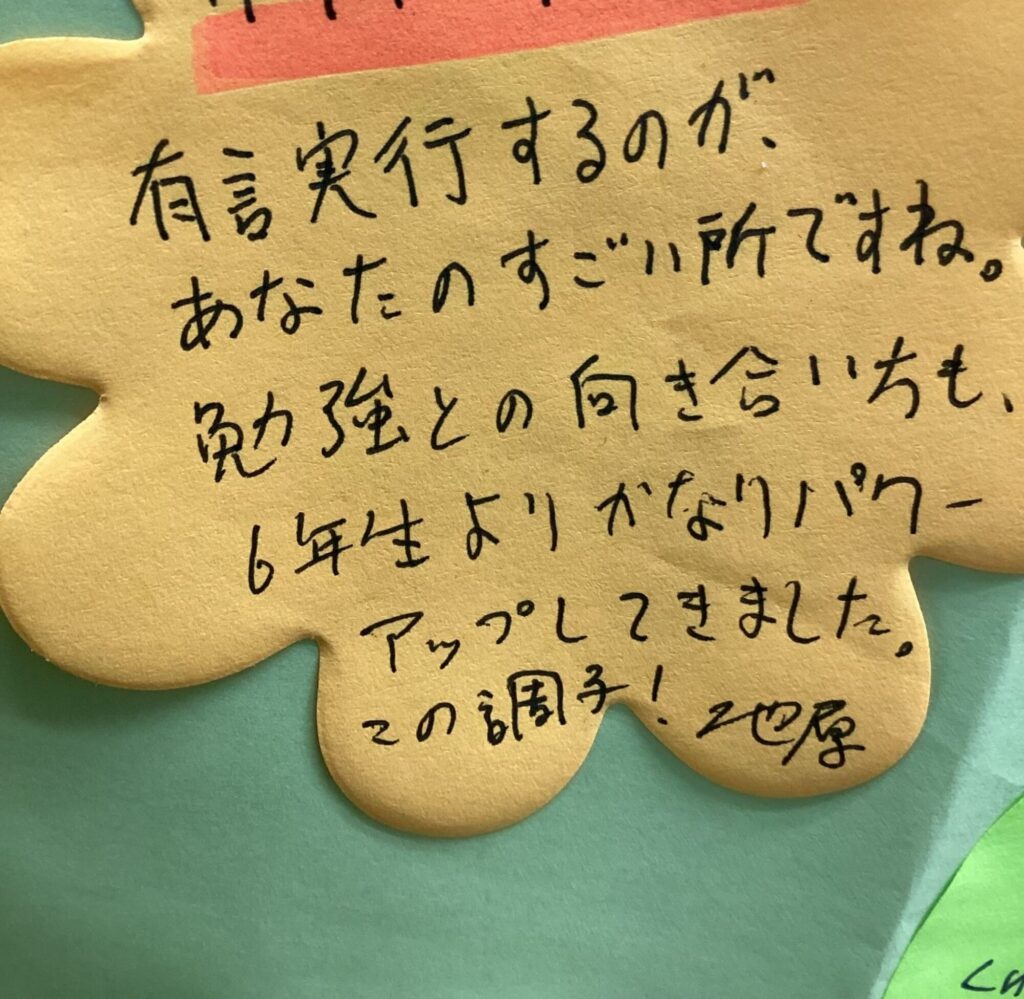 有言実行するのが、
あなたのすごい所ですね。
勉強との向き合い方も、
6年生よりかなりパワー
アップしてきました。
この調子! 池原